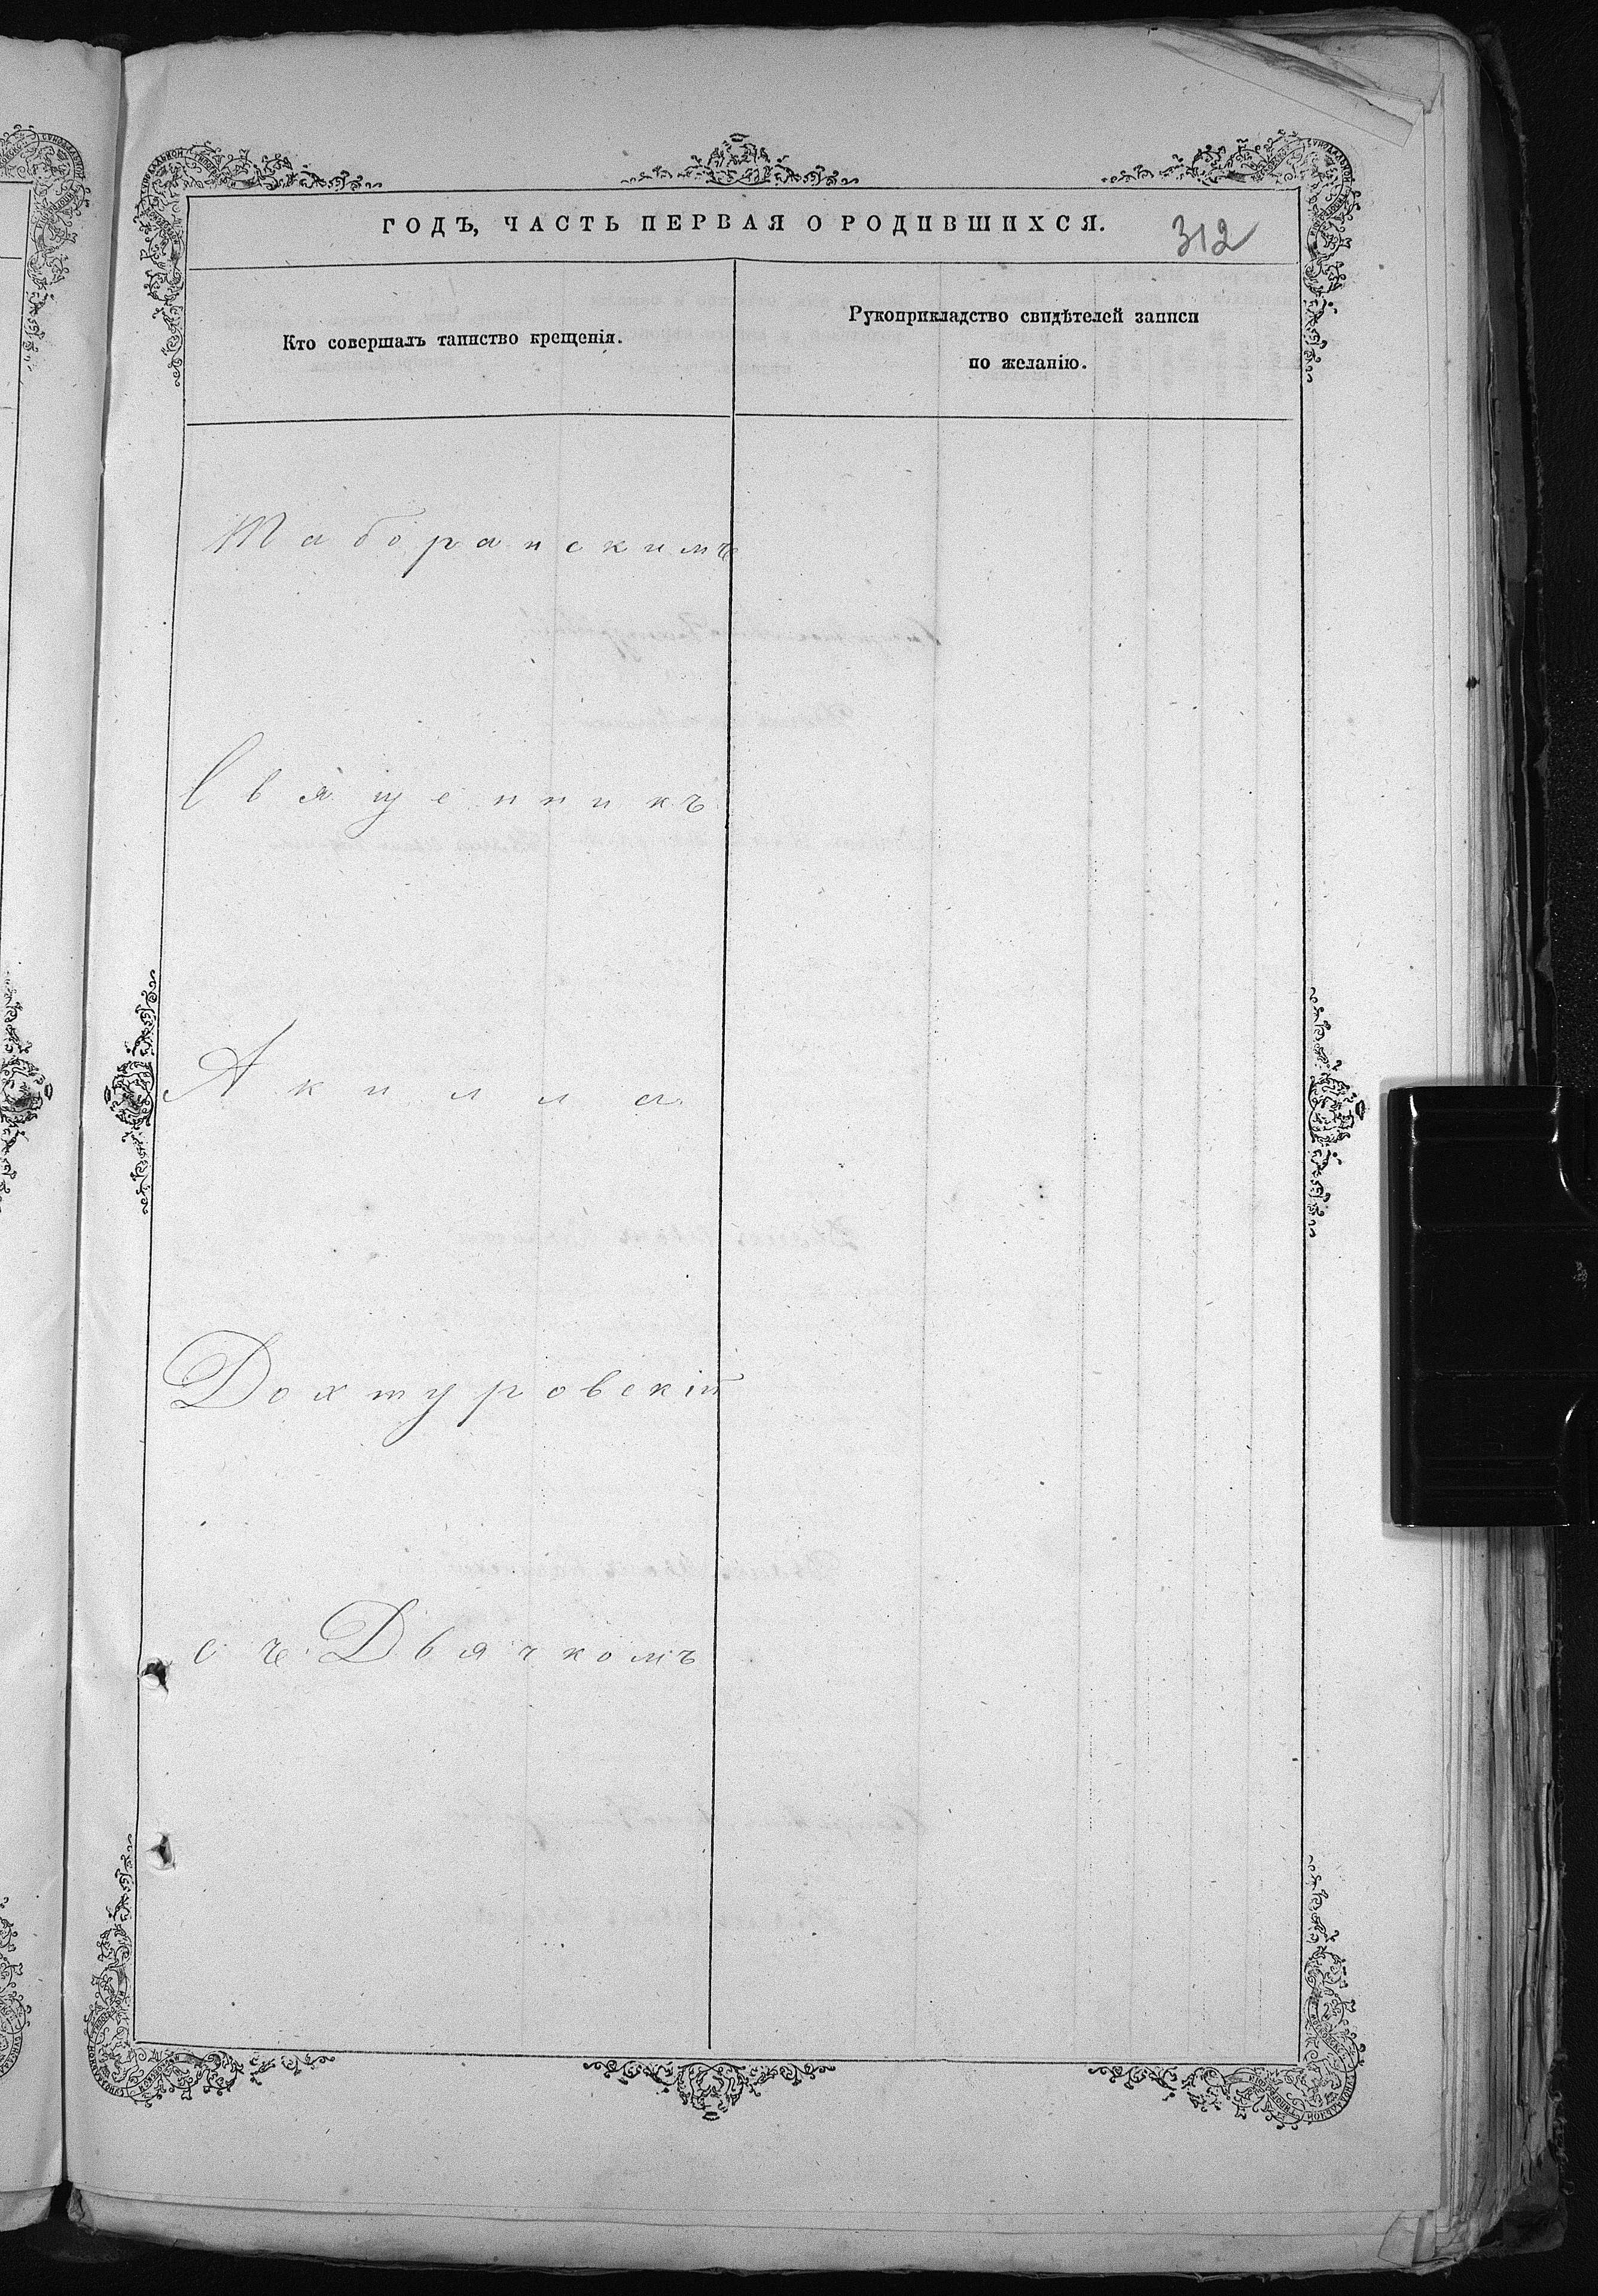 ГОДЪ, ЧАСТЬ ПЕРВАЯ О РОДИВШИХСЯ.
312
Кто совершалъ таинство крещенія.
Рукоприкладство свидѣтелей записи
по желанію.
Таборанскимъ
Священникъ
Акилла
Дохтуровскій
съ Дьячкомъ